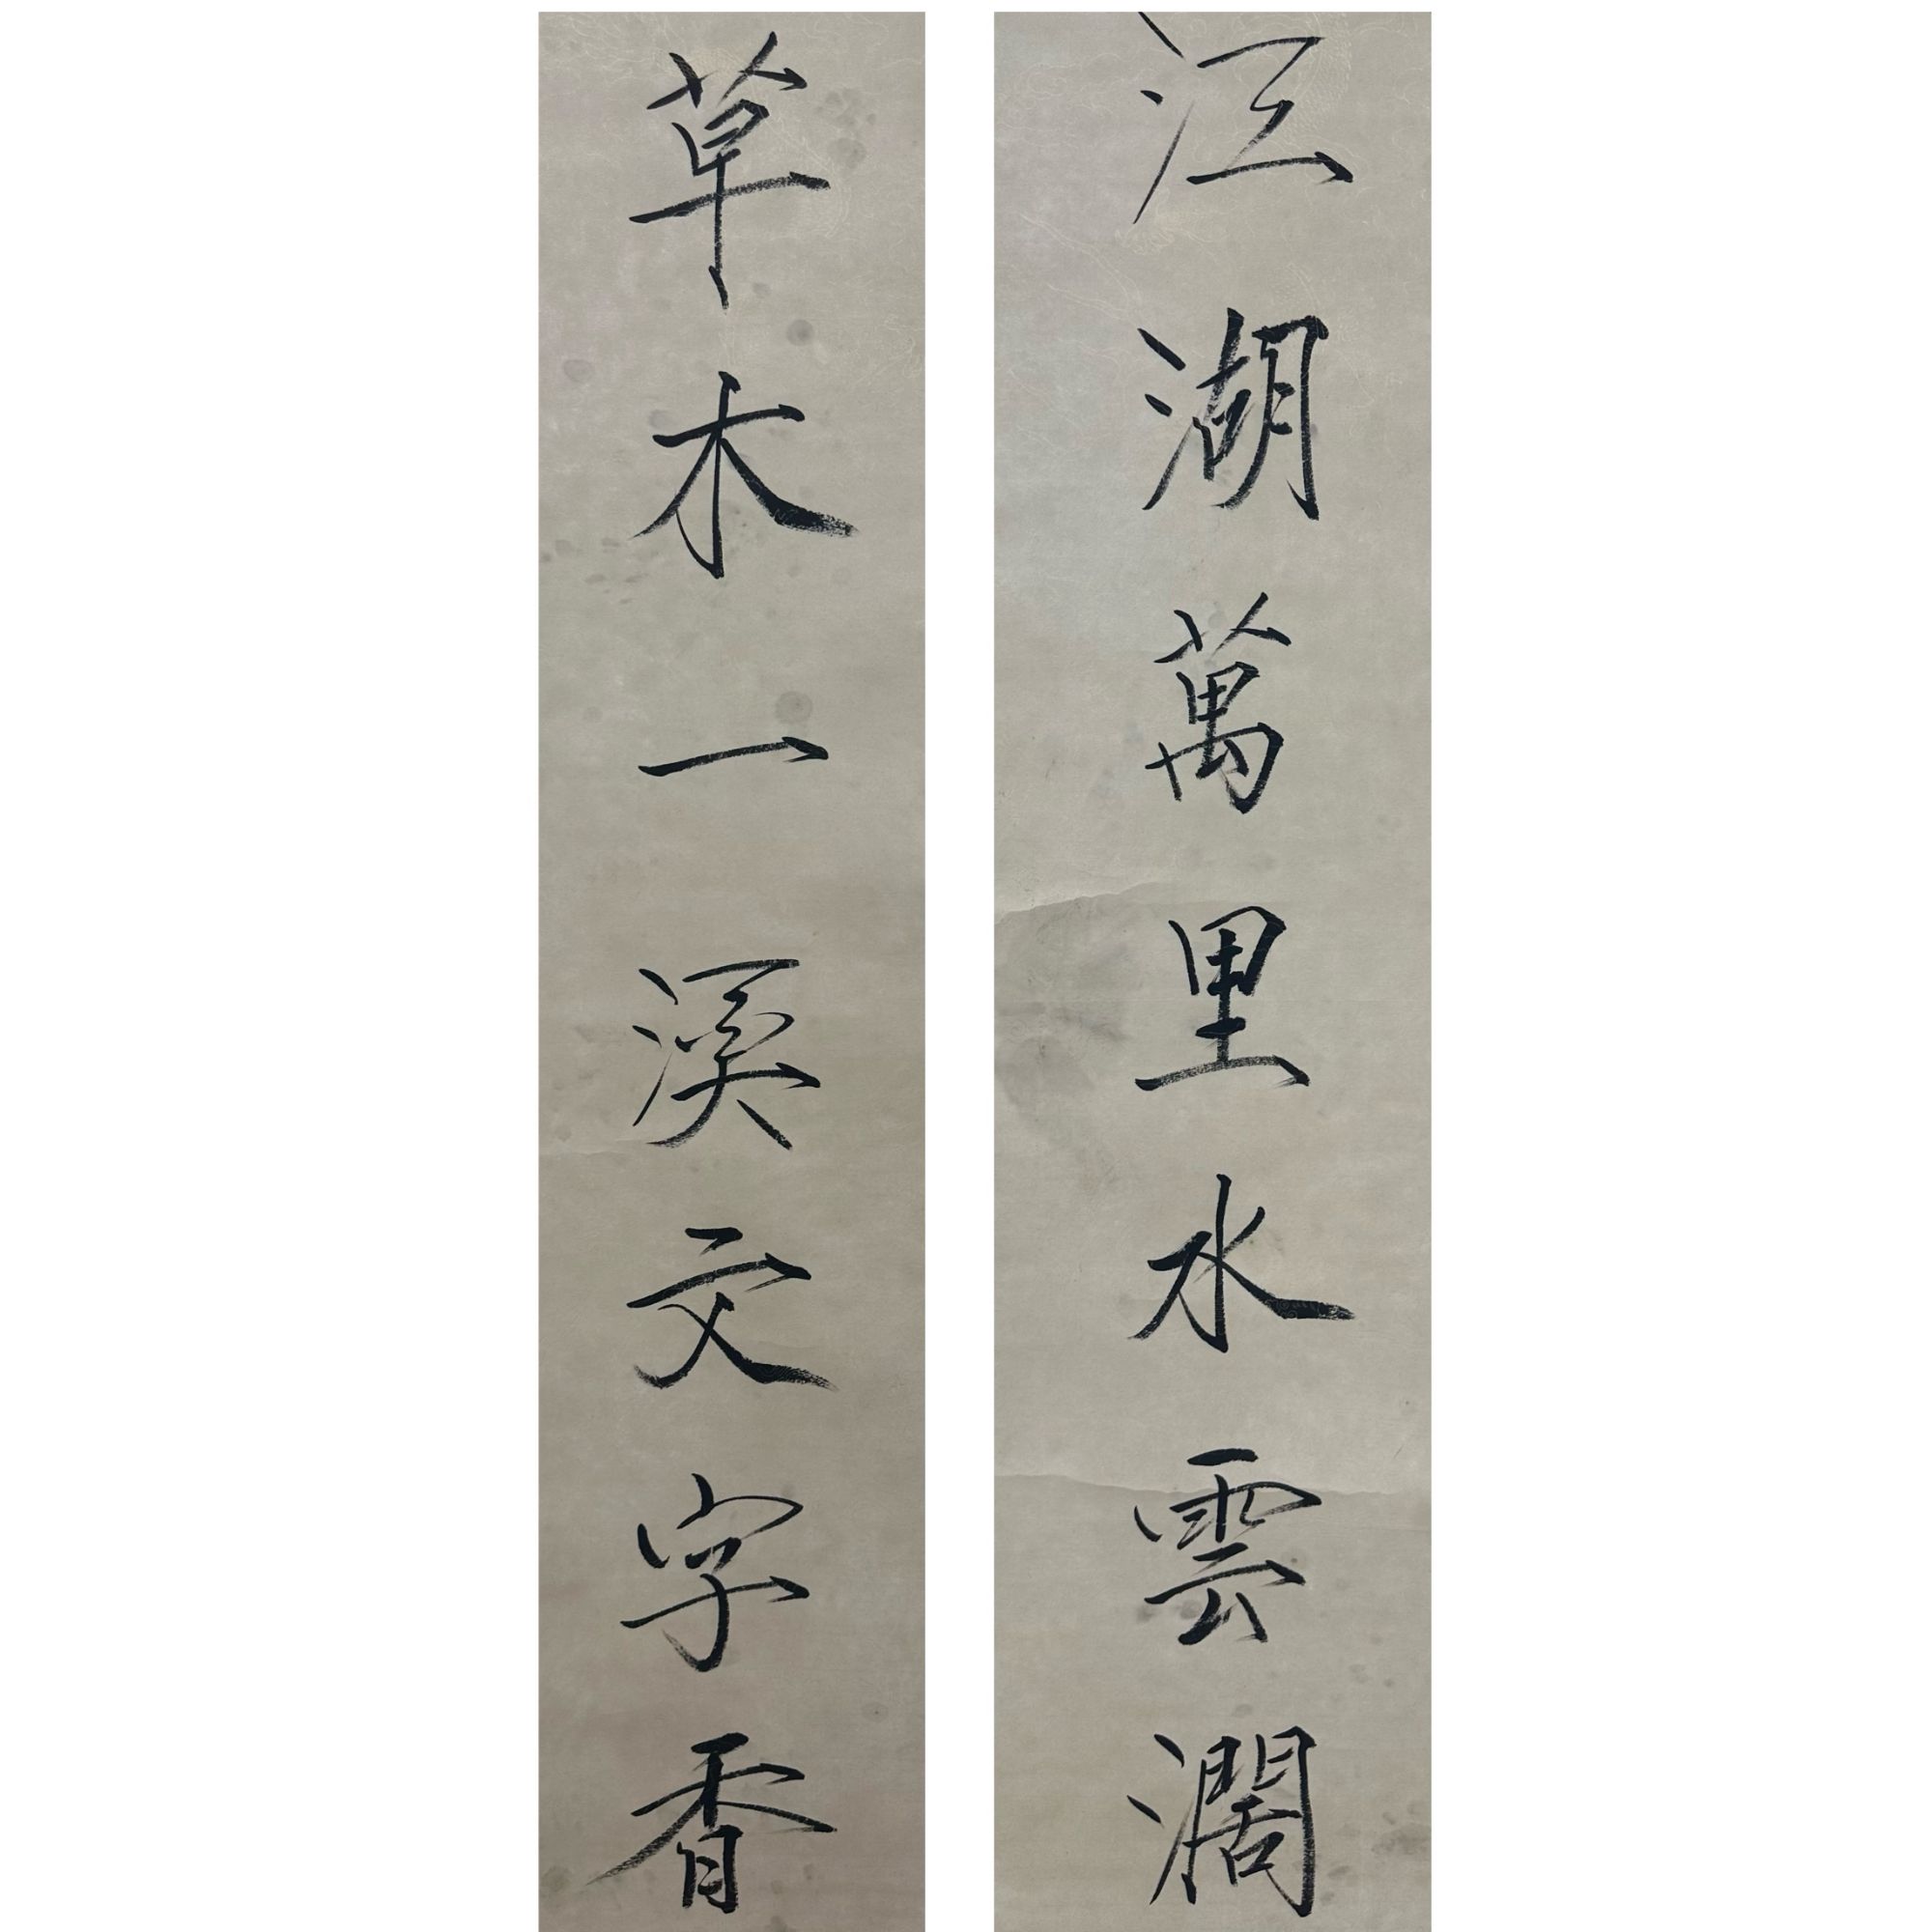 江湖萬里水雲濶
草木一溪文字香